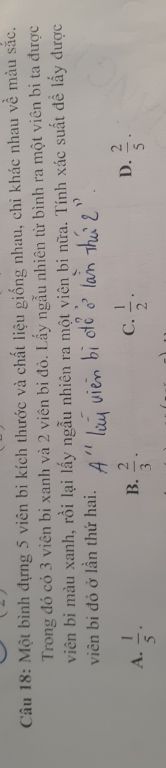 Câu 18: Một bình đựng 5 viên bi kích thước và chất liệu giống nhau, chỉ khác nhau về màu sắc.
Trong đó có 3 viên bi xanh và 2 viên bi đỏ. Lấy ngẫu nhiên từ bình ra một viên bi ta được
viên bi màu xanh, rồi lại lấy ngẫu nhiên ra một viên bi nữa. Tính xác suất để lấy được
viên bi đỏ ở lần thứ hai. A " lấy viên bi đỏ ở lần thứ 2 "
A. 1/5. B. 2/3. C. 1/2. D. 2/5.